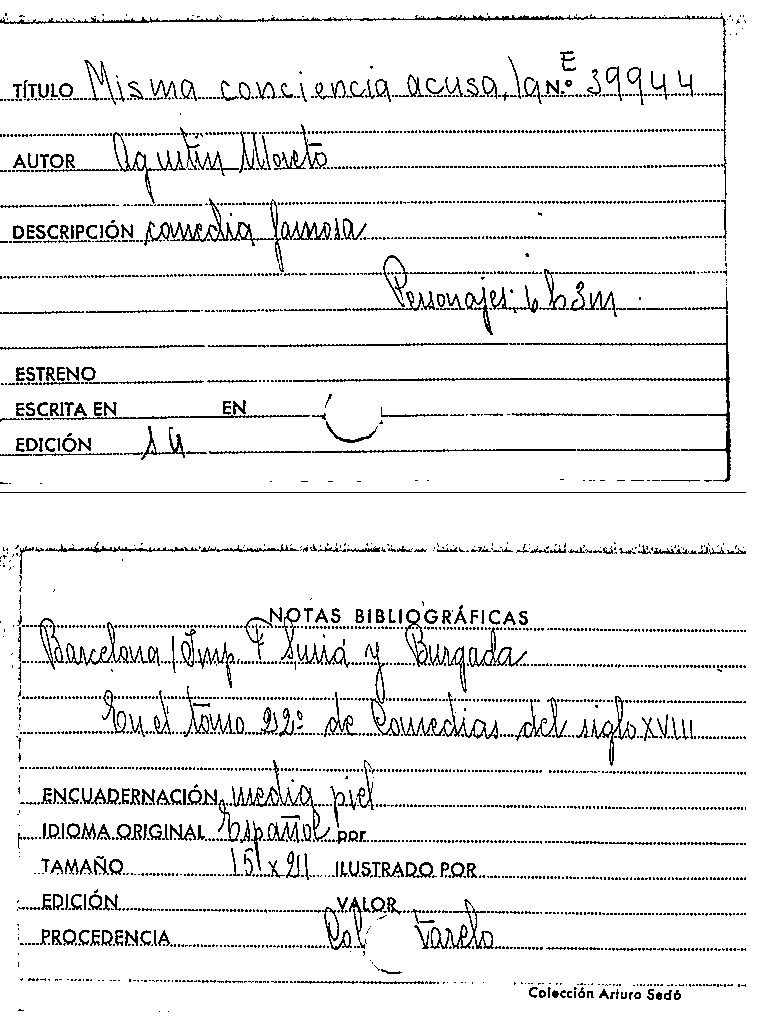 E
TÍTULO Misma conciencia acusa, la N.º 39944
AUTOR Agustín Moreto
DESCRIPCIÓN comedia famosa
Personajes: 6 h 3 m
ESTRENO
ESCRITA EN EN
EDICIÓN s a
NOTAS BIBLIOGRÁFICAS
Barcelona / Imp. F Suriá y Burgada
En el tomo 22º de Comedias del siglo XVIII
ENCUADERNACIÓN media piel
IDIOMA ORIGINAL Español por
TAMAÑO 15 x 21 ILUSTRADO POR
EDICIÓN VALOR
PROCEDENCIA Col
Colección Arturo Sedó